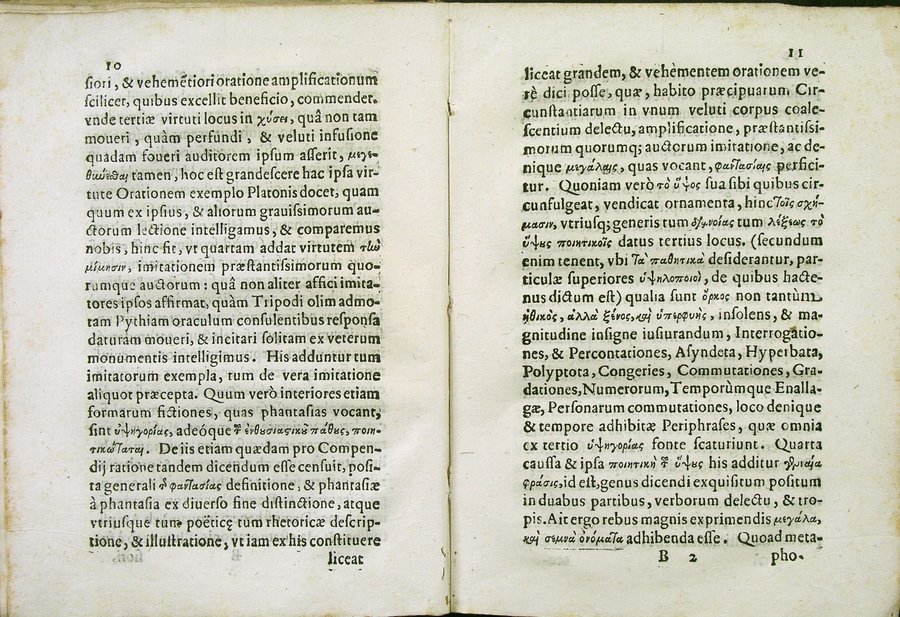 10
siori, & vehemẽtiori oratione amplificationum
scilicet, quibus excellit beneficio, commendet.
vnde tertiæ virtuti locus in χύσει, quâ non tam
moueri, quàm perfundi, & veluti infusione
quadam foueri auditorem ipsum asserit, μεγε-
θιωεῖσθαι tamen, hoc est grandescere hac ipsa vir-
tute Orationem exemplo Platonis docet, quam
quum ex ipsius, & aliorum grauissimorum au-
ctorum lectione intelligamus, & comparemus
nobis, hinc fit, vt quartam addat virtutem τὼ
μίμησιν, imitationem præstantissimorum quo-
rumque auctorum: quâ non aliter affici imita-
tores ipsos affirmat, quàm Tripodi olim admo-
tam Pythiam oraculum consulentibus responsa
daturam moueri, & incitari solitam ex veterum
monumentis intelligimus. His adduntur tum
imitatorum exempla, tum de vera imitatione
aliquot præcepta. Quum verò interiores etiam
formarum fictiones, quas phantasias vocant,
sint ὑψηγορίας, adeóque τ͂ ἐνθυσιαςικοῦ πάθους, ποιη-
τικώταται. De iis etiam quædam pro Compen-
dij ratione tandem dicendum esse censuit, posi-
ta generali τ͂ φαντασίας definitione, & phantasiæ
à phantasia ex diuerso fine distinctione, atque
vtriusque tum poëticę tum rhetoricæ descrip-
tione, & illustratione, vt iam ex his constituere
liceat
11
liceat grandem, & vehementem orationem ve-
rè dici posse, quæ, habito præcipuarum Cir-
cunstantiarum in vnum veluti corpus coale-
scentium delectu, amplificatione, præstantissi-
morum quorumq; auctorum imitatione, ac de-
nique μεγάλαις, quas vocant, φαντασίαις perfici-
tur. Quoniam verò τὸ ὕψος sua sibi quibus cir-
cunfulgeat, vendicat ornamenta, hinc τοῖς σχή-
μασιν, vtriusq; generis tum διανοίας tum λέξεως τὸ
ὕψους ποιητικοῖς datus tertius locus. (secundum
enim tenent, vbi τὰ παθητικὰ desiderantur, par-
ticulæ superiores ὑψηλοποιοὶ, de quibus hacte-
nus dictum est) qualia sunt ὅρκος non tantùm
ἠθικὸς, ἀλλὰ ξένος, καὶ ὑπερφυὴς, insolens, & ma-
gnitudine insigne iusiurandum, Interrogatio-
nes, & Percontationes, Asyndeta, Hyperbata,
Polyptota, Congeries, Commutationes, Gra-
dationes, Numerorum, Temporùmque Enalla-
gæ, Personarum commutationes, loco denique
& tempore adhibitæ Periphrases, quæ omnia
ex tertio ὑψηγορίας fonte scaturiunt. Quarta
caussa & ipsa ποιητικὴ τ͂ ὕψους his additur γενναία
φράσις, id est, genus dicendi exquisitum positum
in duabus partibus, verborum delectu, & tro-
pis. Ait ergo rebus magnis exprimendis μεγάλα,
καὶ σεμνὰ ὀνόματα adhibenda esse. Quoad meta-
B 2 pho-